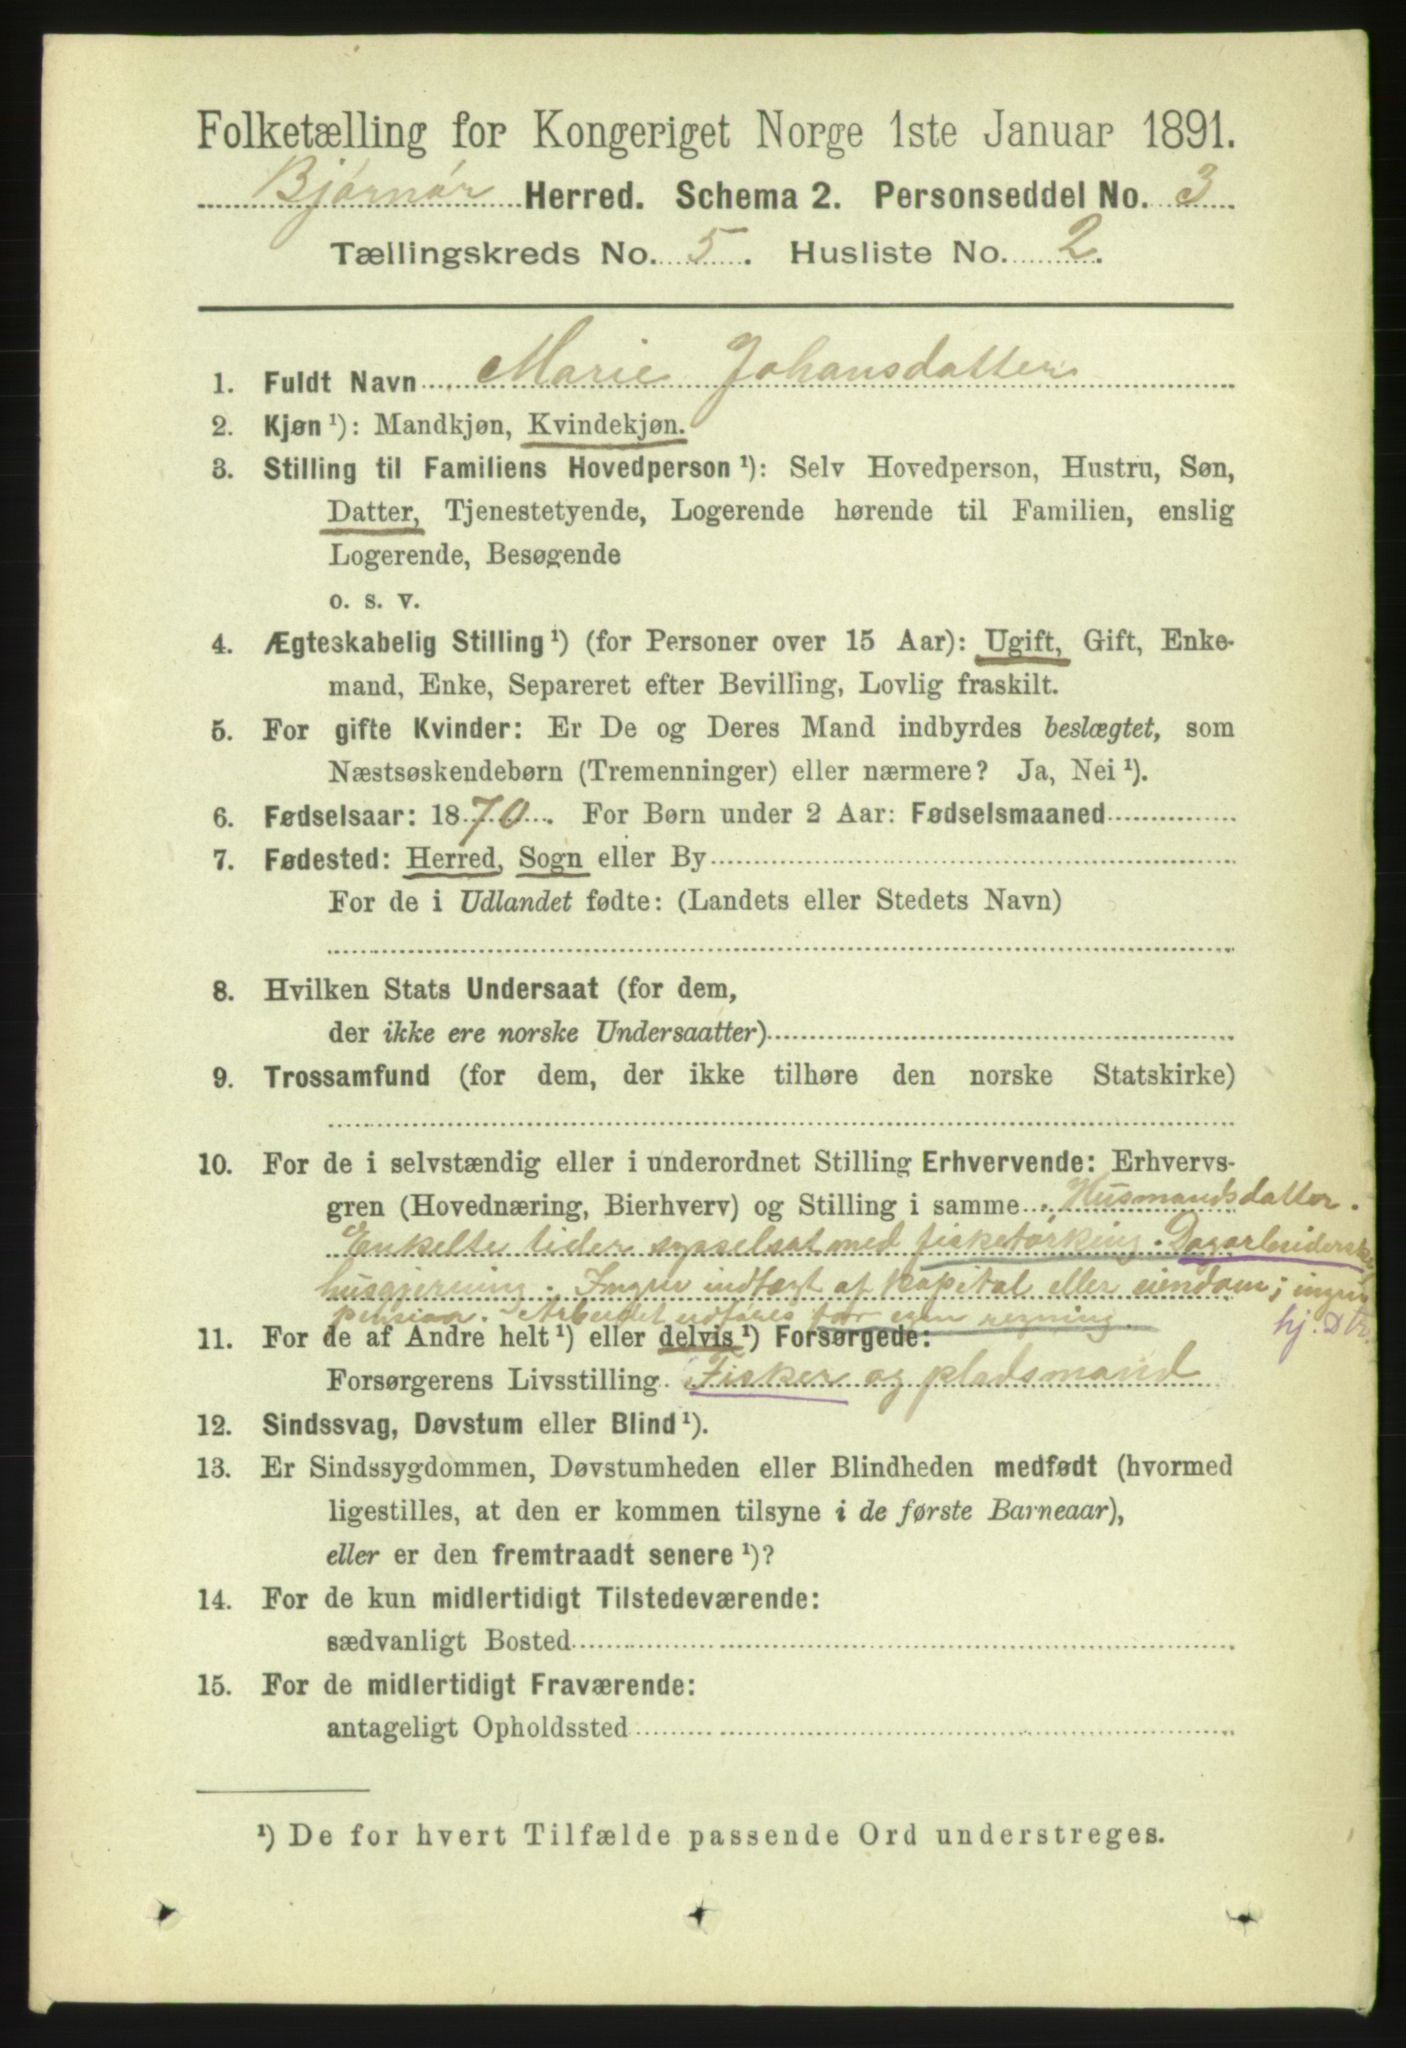 Folketælling for Kongeriget Norge 1ste Januar 1891.
Bjørnør Herred. Schema 2. Personseddel No. 3
Tællingskreds No. 5. Husliste No. 2.
1. Fuldt Navn Marie Johansdatter
2. Kjøn ¹): Mandkjøn, Kvindekjøn.
3. Stilling til Familiens Hovedperson ¹): Selv Hovedperson, Hustru, Søn,
Datter, Tjenestetyende, Logerende hørende til Familien, enslig
Logerende, Besøgende
o. s. v.
4. Ægteskabelig Stilling ¹) (for Personer over 15 Aar): Ugift, Gift, Enke-
mand, Enke, Separeret efter Bevilling, Lovlig fraskilt.
5. For gifte Kvinder: Er De og Deres Mand indbyrdes beslægtet, som
Næstsøskendebørn (Tremenninger) eller nærmere? Ja, Nei ¹).
6. Fødselsaar: 1870. For Børn under 2 Aar: Fødselsmaaned
7. Fødested: Herred, Sogn eller By
For de i Udlandet fødte: (Landets eller Stedets Navn)
8. Hvilken Stats Undersaat (for dem,
der ikke ere norske Undersaatter)
9. Trossamfund (for dem, der ikke tilhøre den norske Statskirke)
10. For de i selvstændig eller i underordnet Stilling Erhvervende: Erhvervs-
gren (Hovednæring, Bierhverv) og Stilling i samme Husmandsdatter.
Enkelte tider sysselsat med fisketørking. Dagarbeiderske,
husgjerning. Ingen indtægt af kapital eller eiendom; ingen
pension. Arbeidet udføres for egen regning.
hj. Dtr.
11. For de af Andre helt ¹) eller delvis ¹) Forsørgede:
Forsørgerens Livsstilling Fisker og pladsmand
12. Sindssvag, Døvstum eller Blind ¹).
13. Er Sindssygdommen, Døvstumheden eller Blindheden medfødt (hvormed
ligestilles, at den er kommen tilsyne i de første Barneaar),
eller er den fremtraadt senere ¹)?
14. For de kun midlertidigt Tilstedeværende:
sædvanligt Bosted
15. For de midlertidigt Fraværende:
antageligt Opholdssted
¹) De for hvert Tilfælde passende Ord understreges.